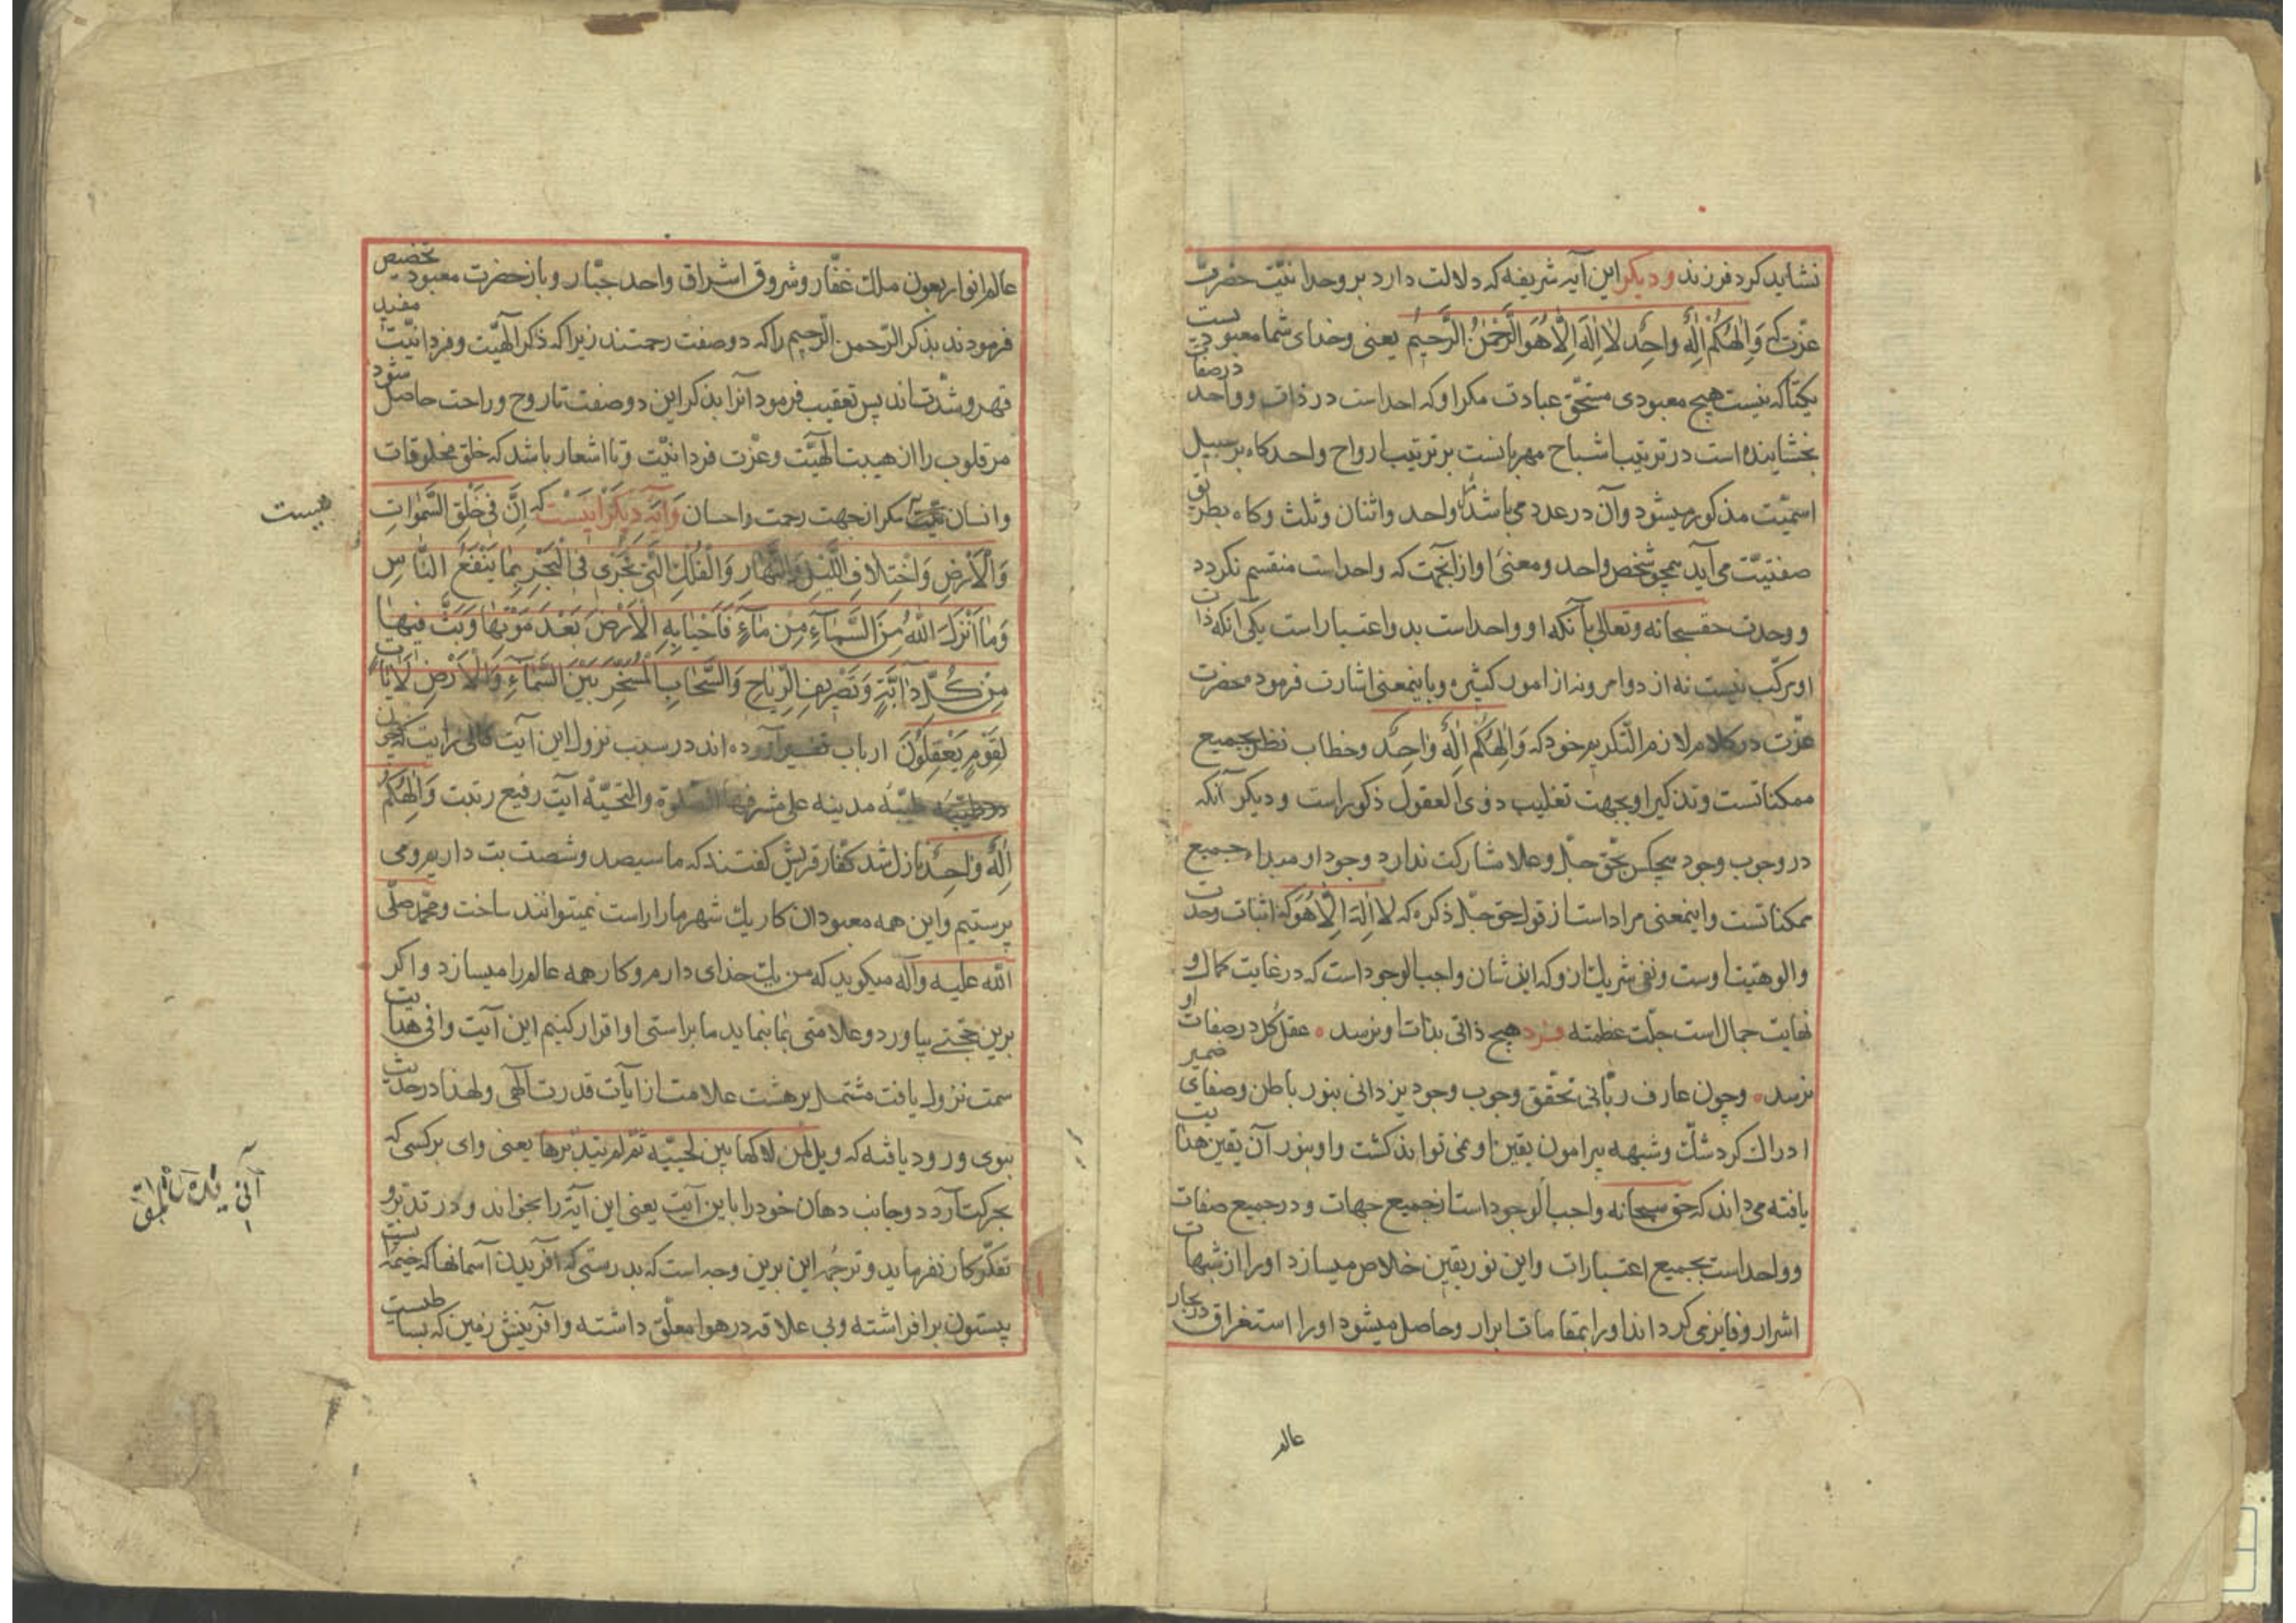 نشاید کرد فرزند و دیکر این آیه شریفه که دلالت دارد بر وحدانیّت حضرت
عزّت که وَاِلٰهُکُمْ اِلٰهٌ واحِدٌ لا اِلٰهَ اِلّا هُوَ الرَّحْمٰنُ الرَّحیمُ یعنی وخدای شما معبودیست
یکتا که نیست هیچ معبودی مستحّق عبادت مکر او که احد است در ذات و واحد در صفات
بخشاینده است در ترتیب اشباح مهربانست بر ترتیب ارواح واحد کاه بر سبیل
اسمیّت مذکور میشود و آن در عدد می باشد واحد و اثنان و ثلث و کاه بطریق
صفتیّت می آید همچو شخص واحد و معنیَ او از آنجهت که واحد است منقسم نکردد
و وحدت حقسبحانه وتعالی بآنکه او واحد است بدو اعتبار است یکی آنکه ذات
او مرکّب نیست نه از دو امر و نه از امور کثیره و باینمعنی اشارت فرموده حضرت
عزّت در کلام لازم التّکریم خود که وَاِلٰهُکُم اِلٰهٌ واحِدٌ وخطاب نظر بجمیع
ممکناتست و تذکیر او بجهت تغلیب ذوی العقول ذکور است و دیکر آنکه
در وجوب وجود هیچکس بحّق جلّ وعلا مشارکت ندارد وجود او مبداء جمیع
ممکناتست و اینمعنی مراد است از قول حق جلّ ذکره که لا اِلٰهَ اِلّا هُوَ که اثبات وحدت
والوهیّت اوست و نفی شریک ازو که این شان واجب الوجود است که در غایت کمال و
نهایت جمال است جلّت عظمته فرد هیچ ذاتی بذات او نرسد عقل کُل در صفات او
نرسد و چون عارف ربّانی تحّقق وجوب وجود یزدانی بنور باطن و صفای ضمیر
ادراک کرد شکّ و شبهه پیرامون یقین او نمی تواند کشت و او بنور آن یقین هدایت
یافته می داند که حق سبحانه واجب الوجود است از جمیع جهات و در جمیع صفات
و واحد است بجمیع اعتبارات و این نور یقین خلاص میسازد او را از شبهات
اشرار و فایز می کرداند او را بمقامات ابرار و حاصل میشود او را استغراق در بحار
عالم
عالم انوار بعون ملک غفّار و شروق اشراق واحد جبّار و باز حضرت معبود تخصیص
فرمودند بذکر الرّحمن الرّحیم را که دو صفت رحمتند زیرا که ذکر الهیّت و فردانیّت مفید
قهر و شدّت اند پس تعقیب فرمود آنرا بذکر این دو صفت تا روح و راحت حاصل شود
مر قلوب را از هیبت الهیّت و عزّت فردانیّت و تا اشعار باشد که خلق مخلوقات
و انسان مکر از جهت رحمت و احسان وَآیَه دیکر اینَسْت که اِنَّ فی خَلْقِ السَّمٰوٰاتِ
نیست
وَالْاَرْضِ وَاخْتِلافِ اللَّیْلِ وَالنَّهارِ وَالْفُلْکِ الَّتی تَجْری فی الْبَحْرِ بِمٰا یَنْفَعُ النّاسِ
وَمٰا اَنْزَلَ اللهُ مِنَ السَّمآءِ مِنْ مٰآءٍ فَاَحْیٰا بِهِ الْاَرْضَ بَعْدَ مَوْتِهٰا وَبَثَّ فیهٰا
مِنْ کُلِّ دآبَّةٍ وَتَصْریفِ الرِّیٰاحِ وَالسَّحٰابِ الْمُسَخَّرِ بَیْنَ السَّمٰآءِ وَالْاَرْضِ لَاٰیٰاتٍ
لِقَوْمٍ یَعْقِلُونَ ارباب تفسیر آورده اند در سبب نزول این آیت که چون
طیّبه مدینه علی مشرفها الصّلوة والتحیّة آیت رفیع رتبت وَاِلٰهُکُمْ
اِلٰهٌ واحِدٌ نازل شد کفّار قریش کفتند که ما سیصد و شصت بت داریم و می
پرستیم و این همه معبودان کار یک شهر ما را راست نمیتوانند ساخت و محمّد صلّی
الله علیه وآله میکوید که من یک خدای دارم و کار همه عالم را میسازد و اکر
برین حجّتی بیاورد و علامتی بما نماید ما براستی او اقرار کنیم این آیت وافی هدایت
سمت نزول یافت مشتمل بر هشت علامت از آیات قدرت الهی و لهذا در حدیث
نبوی ورود یافته که ویل لمن لاکها بین لحییه ثمّ لم یتدبّرها یعنی وای بر کسی که
بحرکت آرد دو جانب دهان خود را باین آیت یعنی این آیة را بخواند و در تدبّر و
تفکّر کار نفرماید و ترجمهٔ این برین وجه است که بدرستی که آفریدن آسمانها که خیمهٔ ایست
بیستون بر افراشته و بی علاقه در هوا معلّق داشته و آفرینش زمین که بساطیست